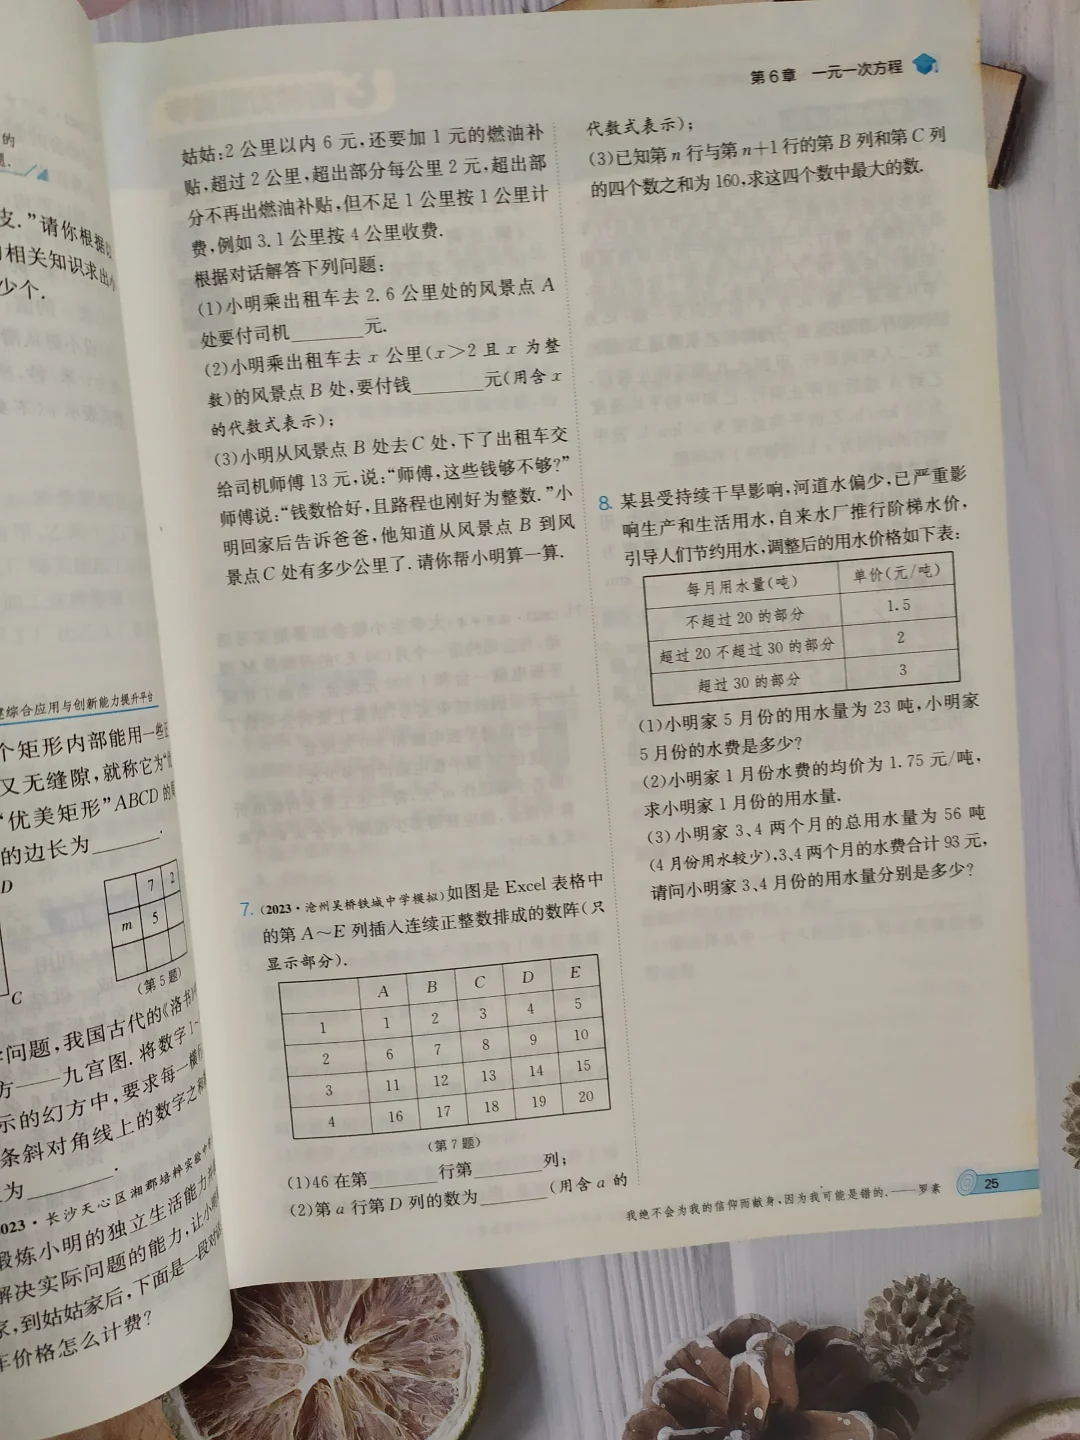 的
题.
皮."请你根据以
相关知识求出小
少个.
综合应用与创新能力提升平台
个矩形内部能用一些正
又无缝隙,就称它为"优
"优美矩形"ABCD的周
的边长为______.
D
C
7 2
m 5
(第5题)
学问题,我国古代的《洛书》中
方——九宫图.将数字1~
示的幻方中,要求每一横行
条斜对角线上的数字之和
为______.
2023·长沙天心区湘郡培粹实验中学
锻炼小明的独立生活能力并
解决实际问题的能力,让小明
家,到姑姑家后,下面是一段对话
车价格怎么计费?
第6章 一元一次方程
姑姑:2公里以内6元,还要加1元的燃油补
贴,超过2公里,超出部分每公里2元,超出部
分不再出燃油补贴,但不足1公里按1公里计
费,例如3.1公里按4公里收费.
根据对话解答下列问题:
(1)小明乘出租车去2.6公里处的风景点A
处要付司机______元.
(2)小明乘出租车去x公里(x>2且x为整
数)的风景点B处,要付钱______元(用含x
的代数式表示);
(3)小明从风景点B处去C处,下了出租车交
给司机师傅13元,说:"师傅,这些钱够不够?"
师傅说:"钱数恰好,且路程也刚好为整数."小
明回家后告诉爸爸,他知道从风景点B到风
景点C处有多少公里了.请你帮小明算一算.
7.(2023·沧州吴桥铁城中学模拟)如图是Excel表格中
的第A~E列插入连续正整数排成的数阵(只
显示部分).
A B C D E
1 1 2 3 4 5
2 6 7 8 9 10
3 11 12 13 14 15
4 16 17 18 19 20
(第7题)
(1)46在第______行第______列;
(2)第a行第D列的数为______(用含a的
代数式表示);
(3)已知第n行与第n+1行的第B列和第C列
的四个数之和为160,求这四个数中最大的数.
8.某县受持续干旱影响,河道水偏少,已严重影
响生产和生活用水,自来水厂推行阶梯水价,
引导人们节约用水,调整后的用水价格如下表:
每月用水量(吨) 单价(元/吨)
不超过20的部分 1.5
超过20不超过30的部分 2
超过30的部分 3
(1)小明家5月份的用水量为23吨,小明家
5月份的水费是多少?
(2)小明家1月份水费的均价为1.75元/吨,
求小明家1月份的用水量.
(3)小明家3、4两个月的总用水量为56吨
(4月份用水较少),3、4两个月的水费合计93元,
请问小明家3、4月份的用水量分别是多少?
我绝不会为我的信仰而献身,因为我可能是错的.——罗素
25